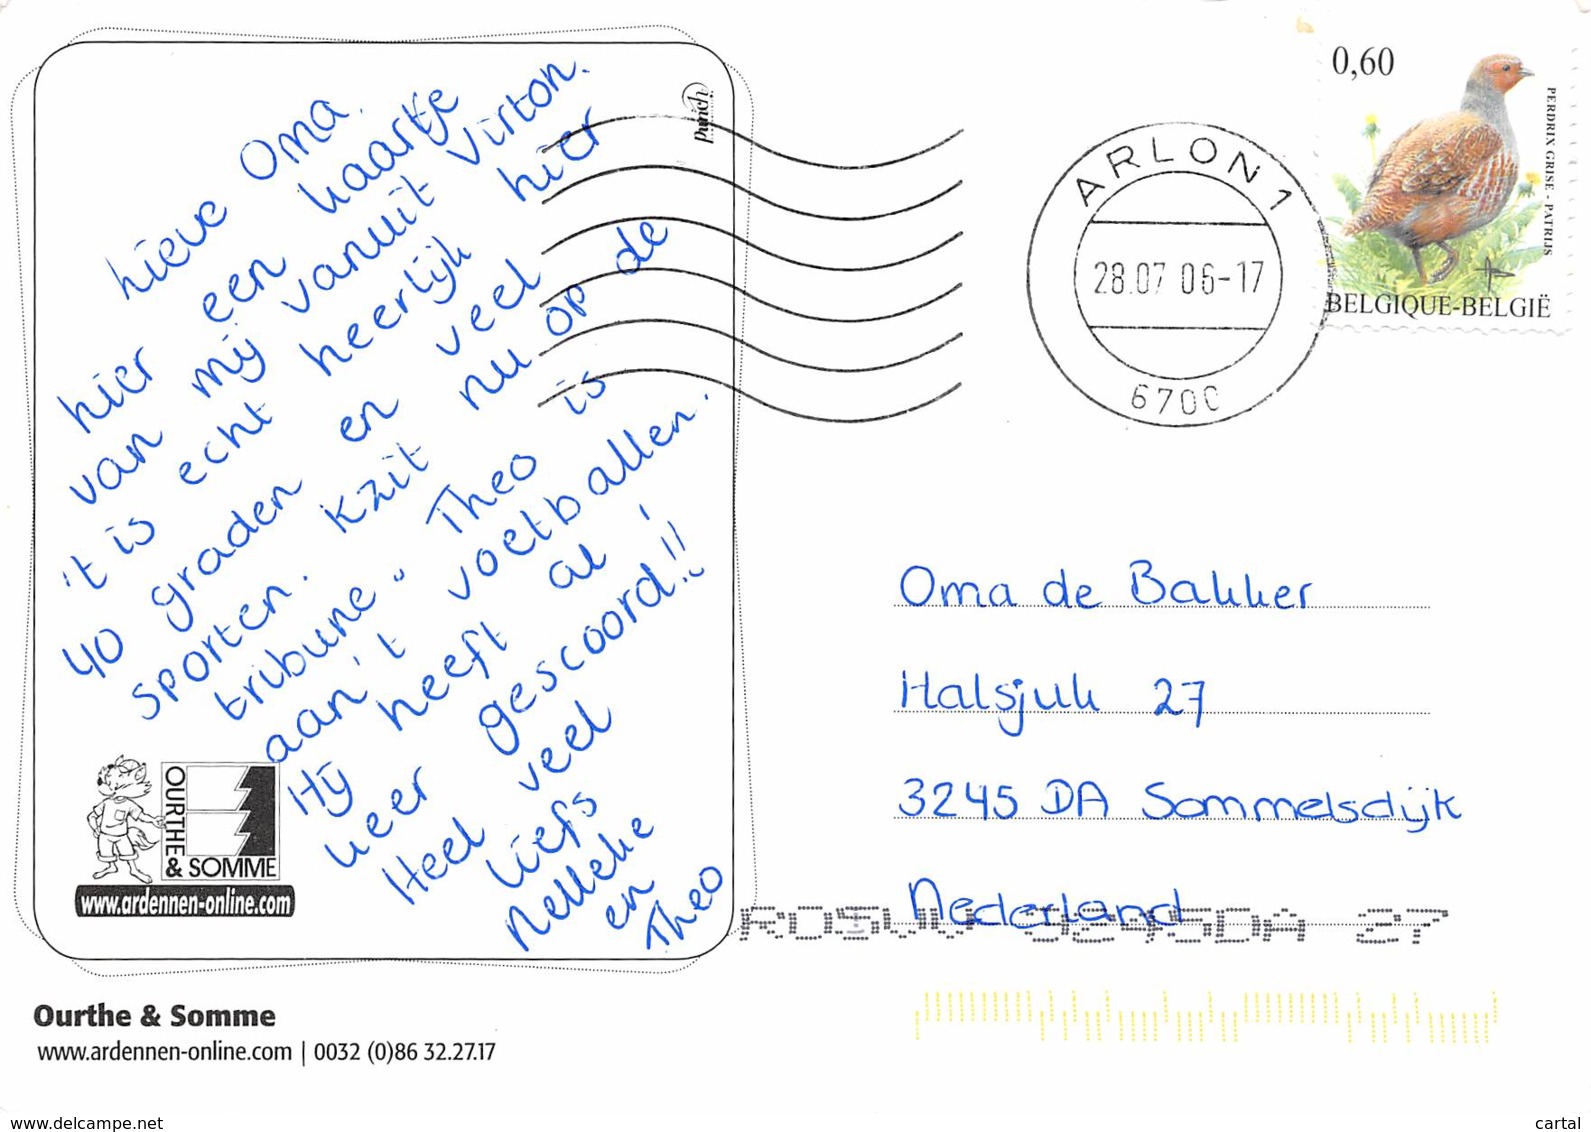 hieve Oma.
hier een kaartje
van mij vanuit Virton.
't is echt heerlijk hier
40 graden en veel
sporten. Kzit nu op de
tribune" Theo is
aan 't voetballen.
Hij heeft al 1
keer gescoord!!
Heel veel
liefs
Nelleke
en
Theo
Punch
OURTHE
& SOMME
www.ardennen-online.com
Ourthe & Somme
www.ardennen-online.com | 0032 (0)86 32.27.17
0,60
PERDRIX GRISE - PATRIJS
BELGIQUE-BELGIË
ARLON 1
28.07 06-17
6700
Oma de Bakker
Halsjuk 27
3245 DA Sommelsdijk
Nederland
3245DA 27
www.delcampe.net
cartal